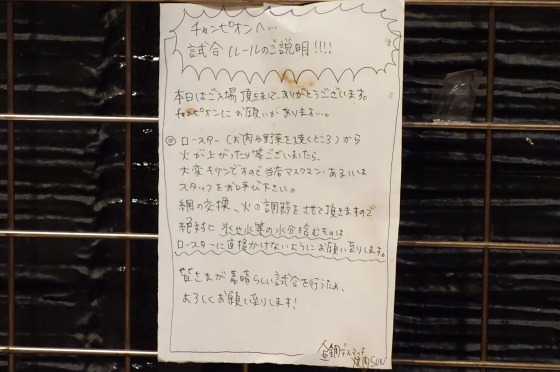 チャンピオンへ…
試合ルールのご説明!!!!
本日はご入場頂きまして、ありがとうございます。
チャンピオンにお願いがあります…。
◎ロースター(お肉や野菜を焼くところ)から
火が上がったり等ございましたら、
大変キケンですので当店マスクマン・あるいは
スタッフをお呼び下さい。
網の交換、火の調節をさせて頂きますので
絶対に氷や水等の水分含むものは
ロースターに直接かけないようにお願い至ります。
皆さまが素晴らしい試合を行うため、
よろしくお願い至ります!
金網デスマッチ
焼肉SUN